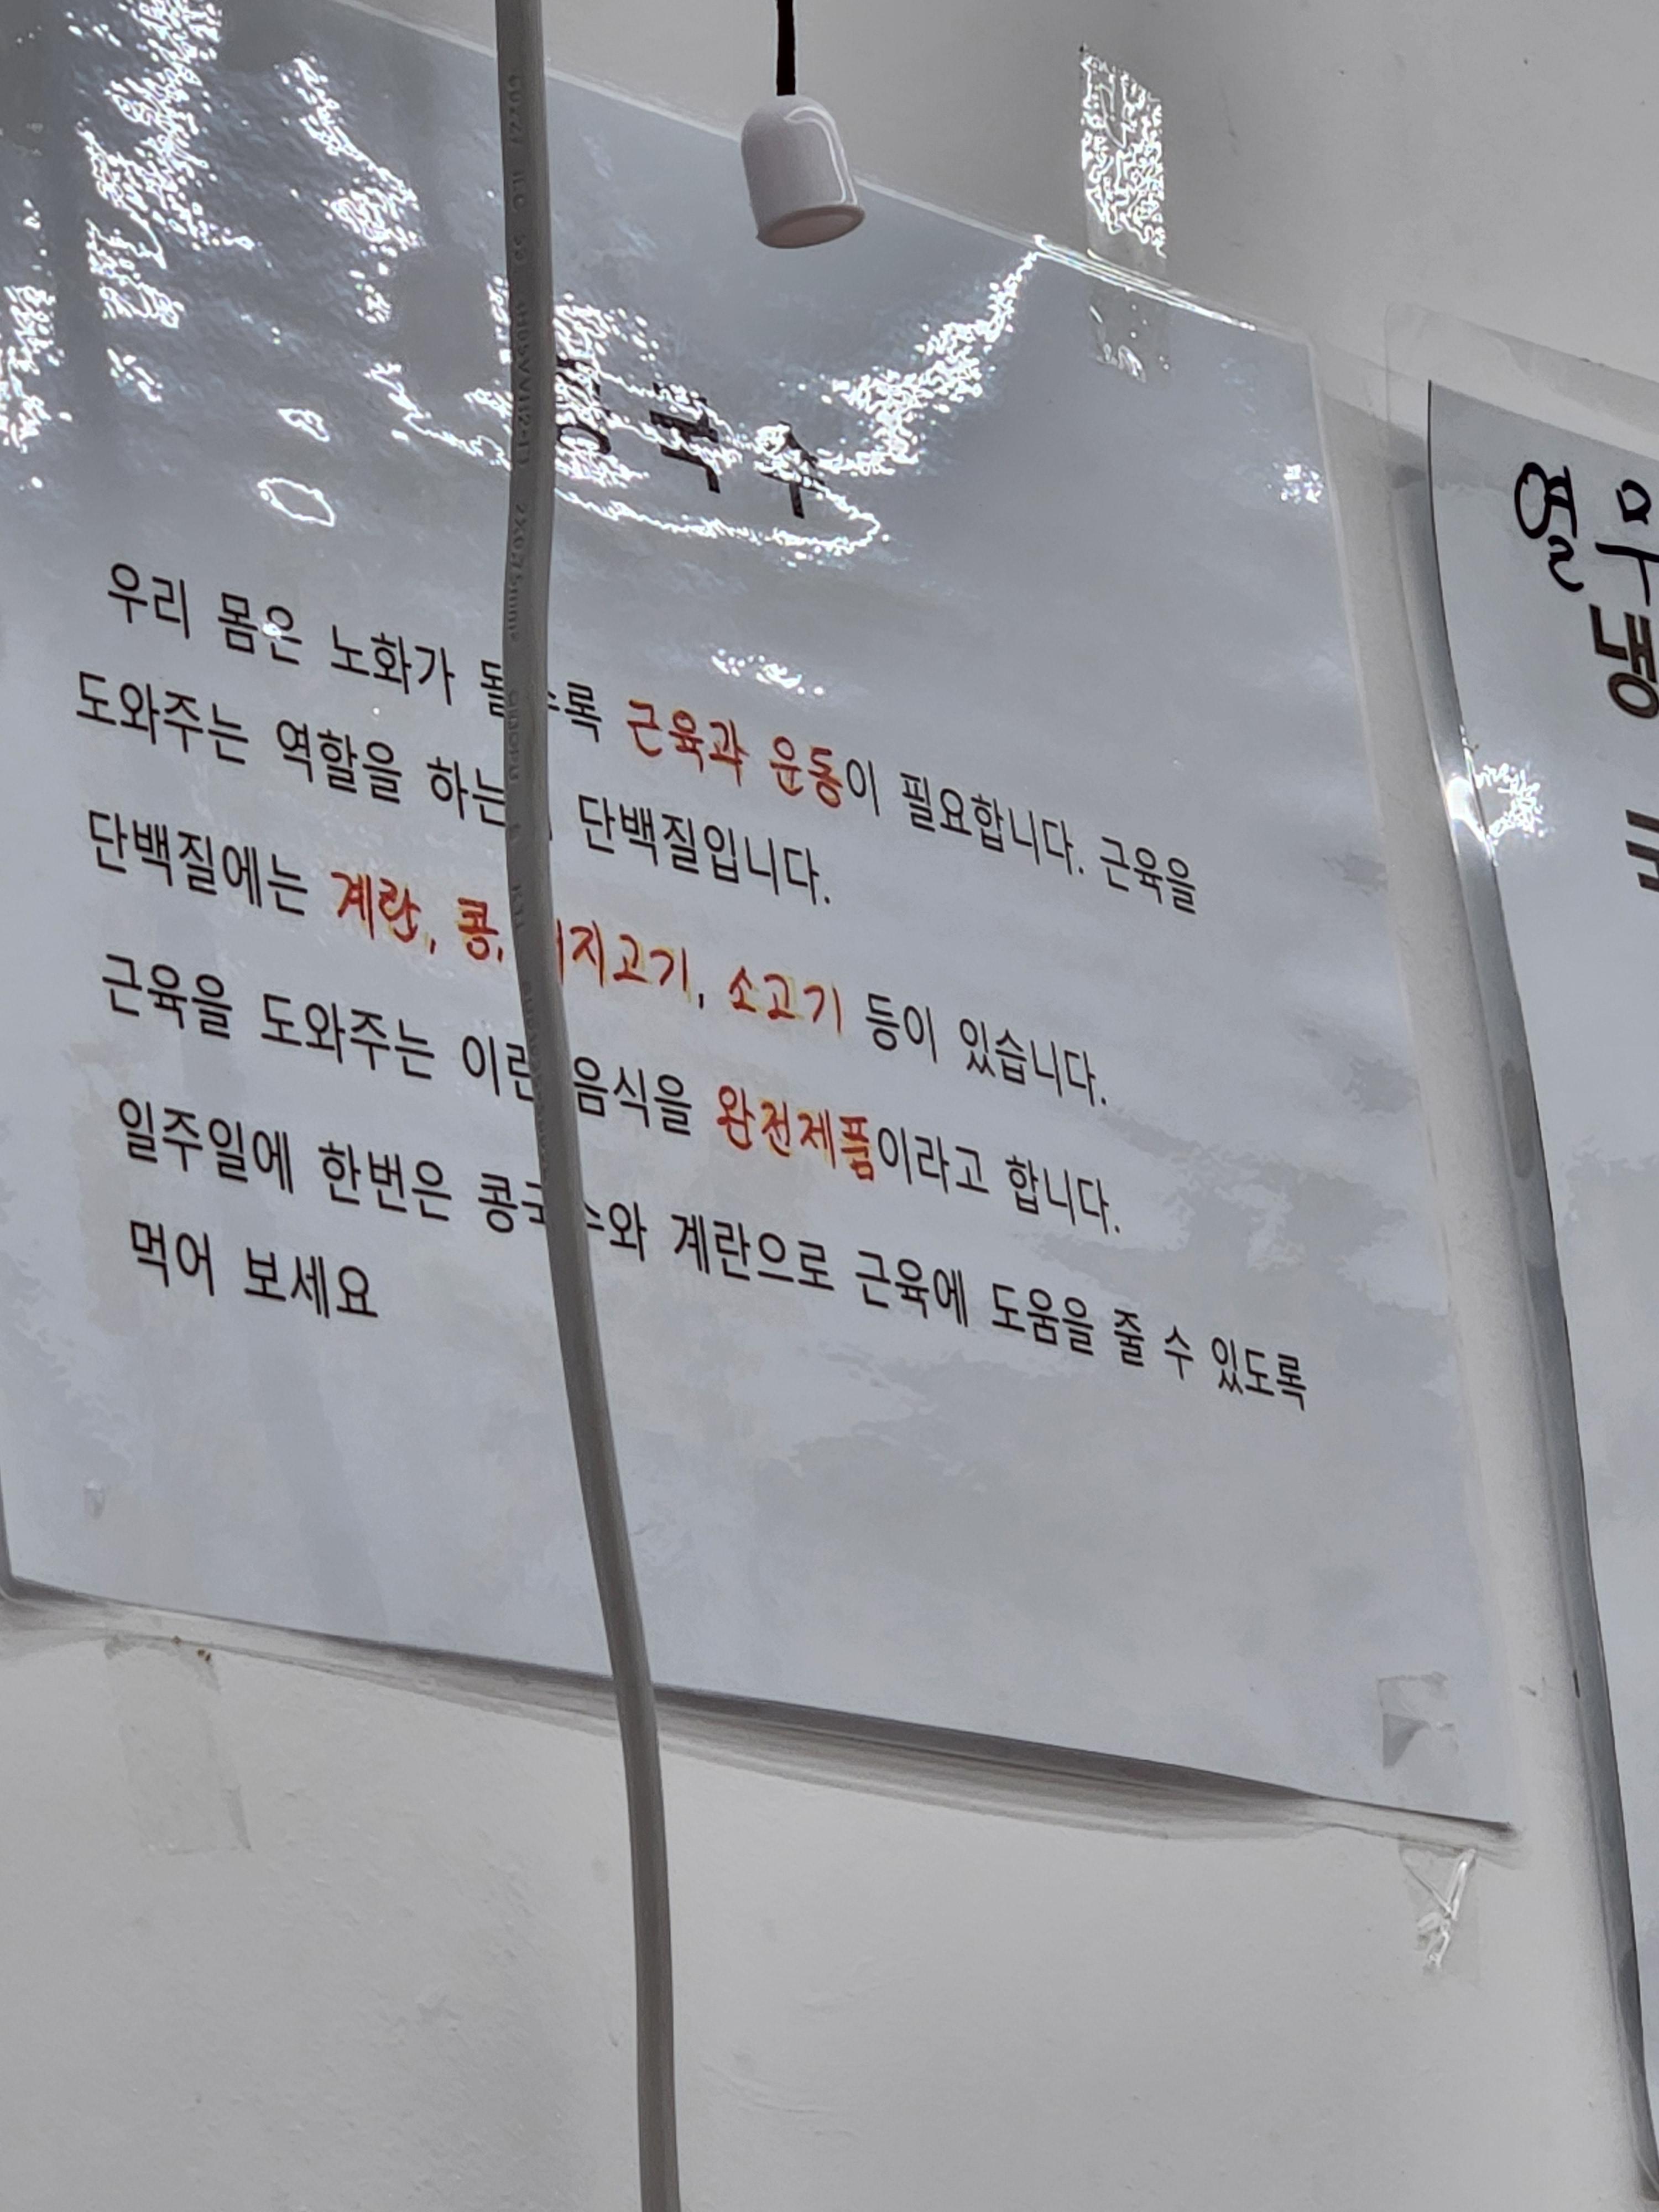 콩국수
우리 몸은 노화가 될수록 근육과 운동이 필요합니다. 근육을
도와주는 역할을 하는 단백질입니다.
단백질에는 계란, 콩, 돼지고기, 소고기 등이 있습니다.
근육을 도와주는 이런 음식을 완전제품이라고 합니다.
일주일에 한번은 콩국수와 계란으로 근육에 도움을 줄 수 있도록
먹어 보세요